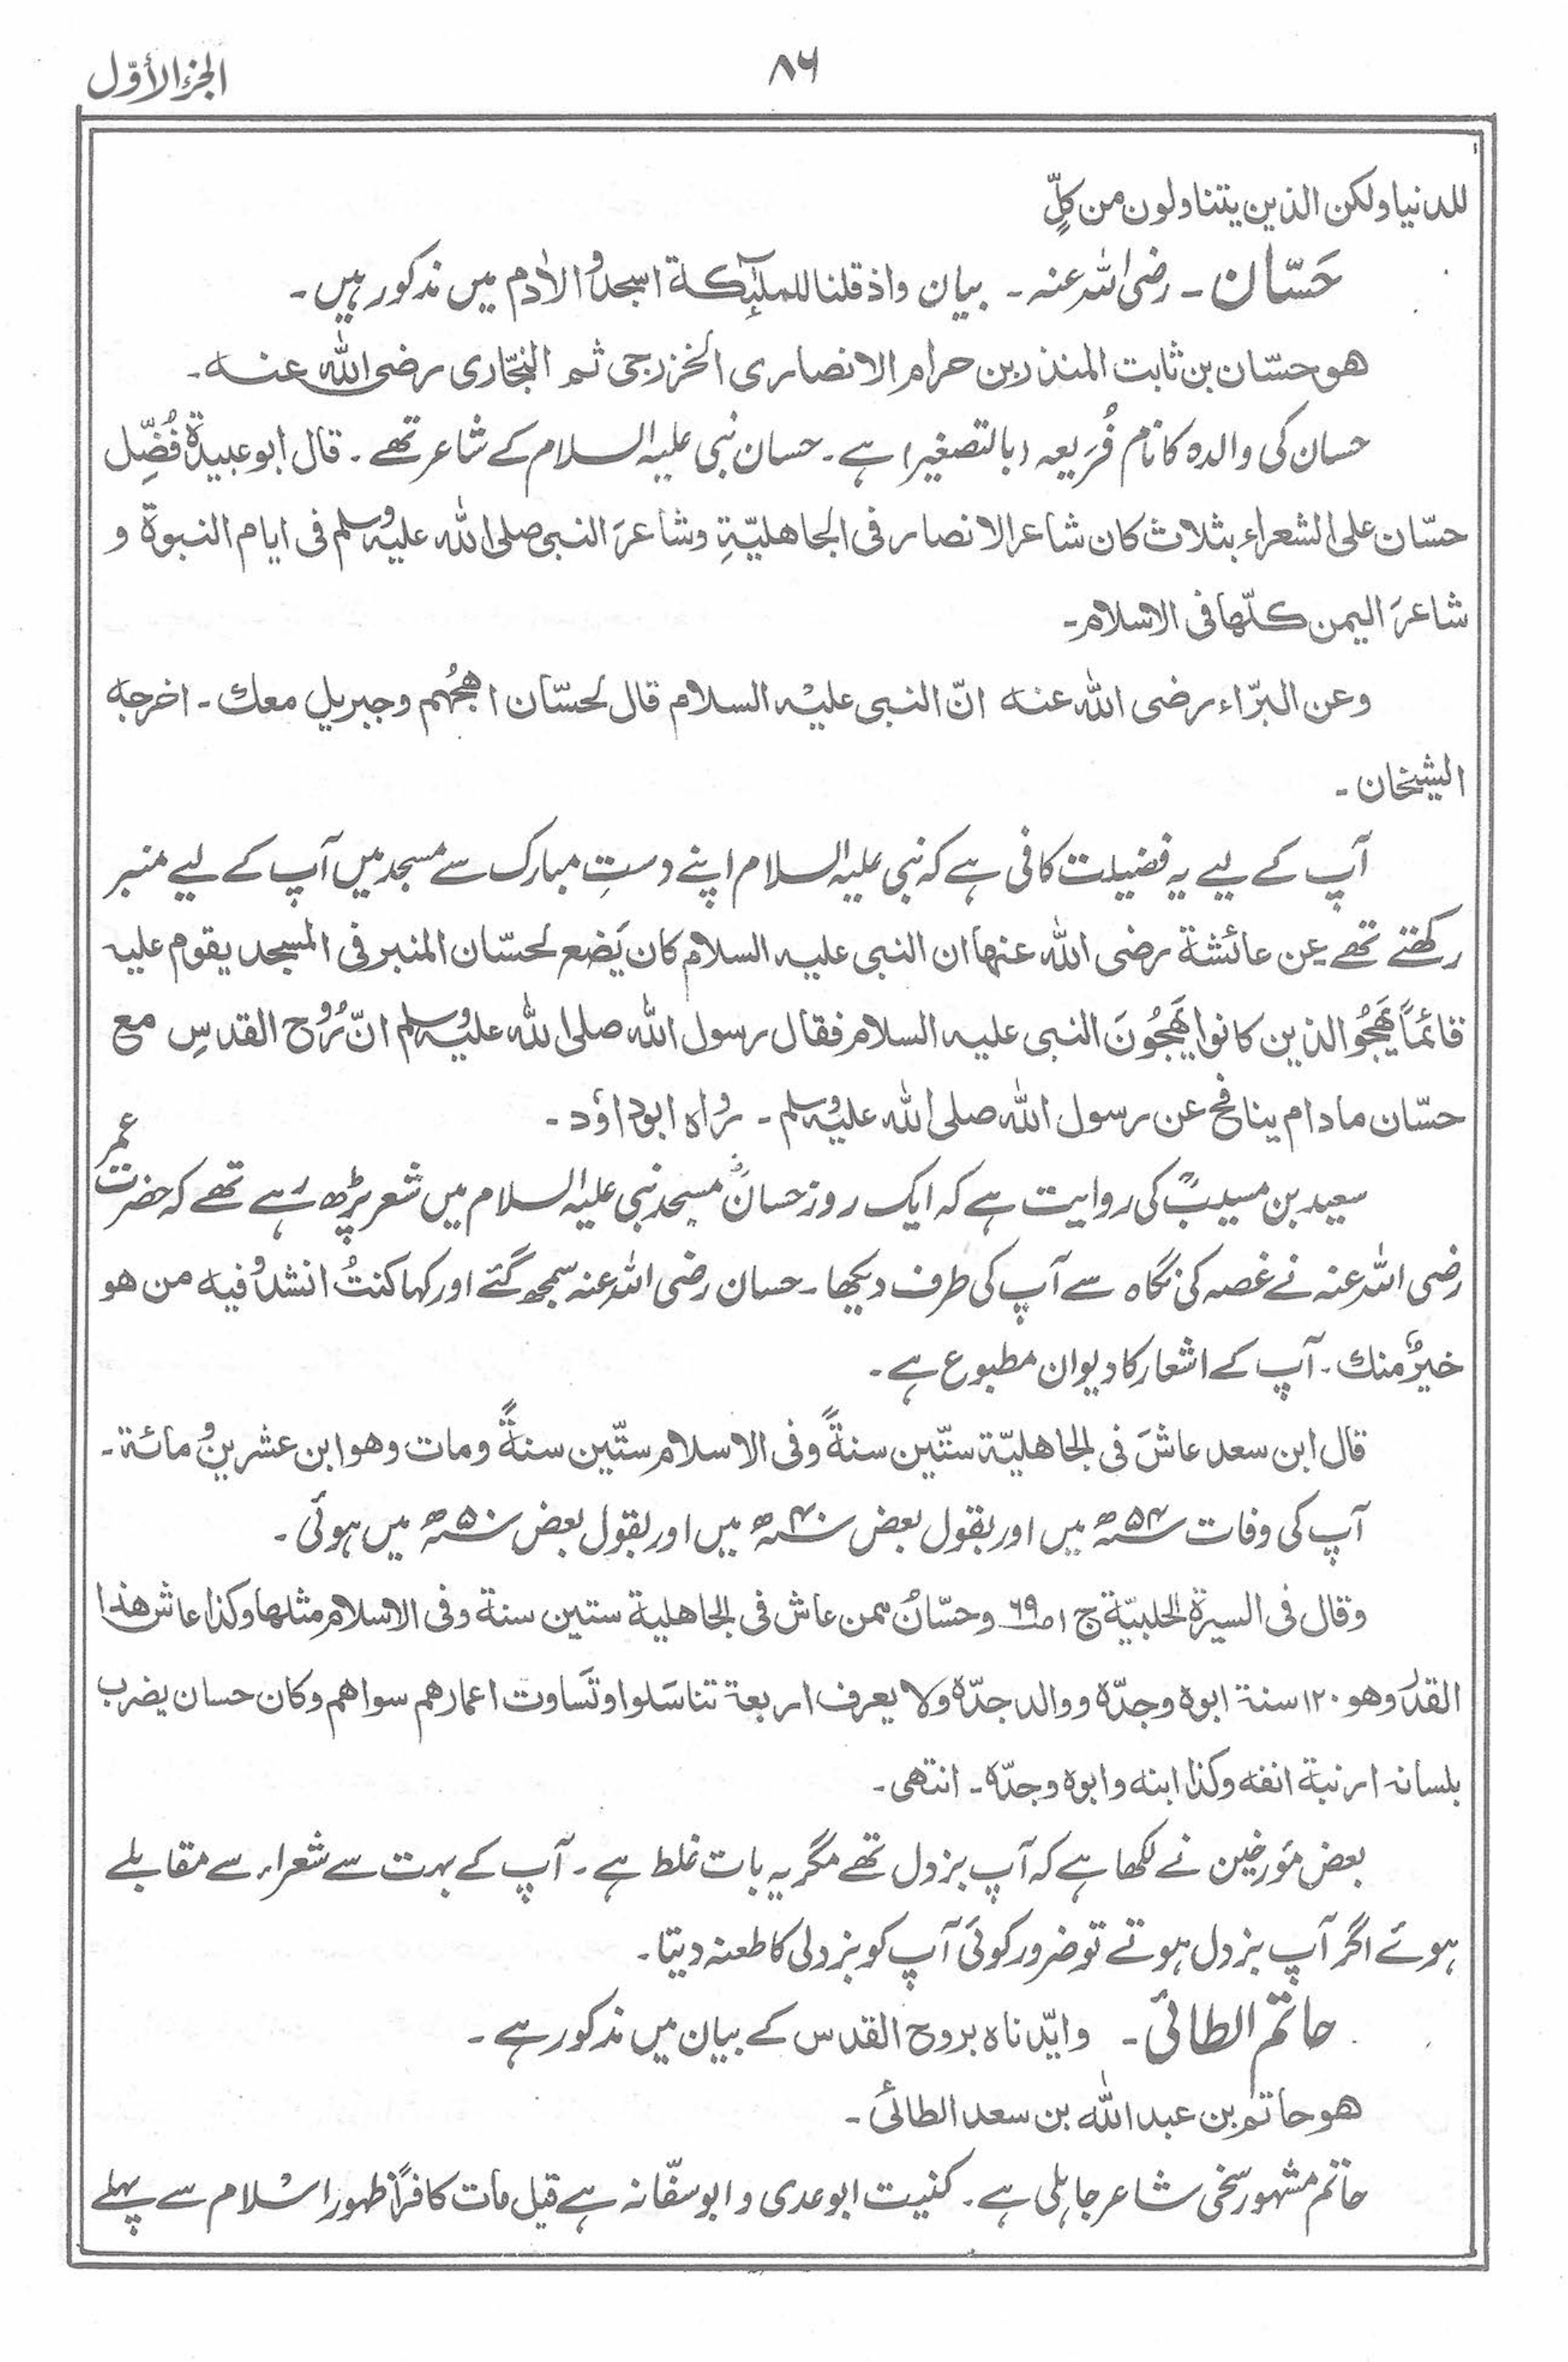 الجزء الأوّل
۸۶
للدنیا ولکن الذین یتناولون من کلٍّ
حَسّان ۔ رضی اللہ عنہ ۔ بیان واذ قلنا للملٰٓئکۃ اسجدوا لاٰدم میں مذکور ہیں ۔
ھو حسّان بن ثابت المنذر بن حرام الانصاری الخزرجی ثم النجّاری رضی اللہ عنہ ۔
حسان کی والدہ کا نام فُرَیعہ (بالتصغیر) ہے ۔ حسان نبی علیہ السلام کے شاعر تھے ۔ قال ابو عبیدۃ فُضِّل
حسّان علی الشعراء بثلاث کان شاعر الانصار فی الجاھلیّۃِ وشاعرَ النبی صلی اللہ علیہ وسلم فی ایام النبوۃ و
شاعرَ الیمن کلّھا فی الاسلام ۔
وعن البرّاء رضی اللہ عنہ انّ النبی علیْہ السلام قال لحسّان اھجُھم وجبریل معک ۔ اخرجہ
الشیخان ۔
آپ کے لیے یہ فضیلت کافی ہے کہ نبی علیہ السلام اپنے دستِ مبارک سے مسجد میں آپ کے لیے منبر
رکھتے تھے عن عائشۃ رضی اللہ عنہا ان النبی علیہ السلام کان یَضع لحسّان المنبر فی المسجد یقوم علیہ
قائمًا یَھْجُو الذین کانوا یَھْجُونَ النبی علیہ السلام فقال رسول اللہ صلی اللہ علیہ وسلم انّ رُوح القدسِ مع
حسّان مادام ینافح عن رسول اللہ صلی اللہ علیہ وسلم ۔ رواہ ابوداؤد ۔
سعید بن مسیبؒ کی روایت ہے کہ ایک روز حسانؓ مسجدِ نبی علیہ السلام میں شعر پڑھ رہے تھے کہ حضرت عمر
رضی اللہ عنہ نے غصہ کی نگاہ سے آپ کی طرف دیکھا ۔ حسان رضی اللہ عنہ سمجھ گئے اور کہا کنتُ انشدُ وفیہ من ھو
خیرٌ منک ۔ آپ کے اشعار کا دیوان مطبوع ہے ۔
قال ابن سعد عاشَ فی الجاھلیّۃ ستّین سنۃً وفی الاسلام ستّین سنۃً ومات وھو ابن عشرین ومائۃ ۔
آپ کی وفات ۵۴ھ میں اور بقول بعض ۴۰ھ میں اور بقول بعض ۵۰ھ میں ہوئی ۔
وقال فی السیرۃ الحلبیّۃ ج ۱ ص۶۹ وحسّان ممن عاش فی الجاھلیۃ ستین سنۃ وفی الاسلام مثلھا وکذا عاش ھذا
القدر وھو ۱۲۰ سنۃ ابوہ وجدّہ ووالد جدّہ ولا یعرف اربعۃ تناسَلوا وتَساوت اعمارھم سواھم وکان حسان یضرب
بلسانہ ارنبۃ انفہ وکذا ابنہ وابوہ وجدّہ ۔ انتھی ۔
بعض مؤرخین نے لکھا ہے کہ آپ بزدل تھے مگر یہ بات غلط ہے ۔ آپ کے بہت سے شعراء سے مقابلے
ہوئے اگر آپ بزدل ہوتے تو ضرور کوئی آپ کو بزدلی کا طعنہ دیتا ۔
حاتم الطائی ۔ وایّدناہ بروح القدس کے بیان میں مذکور ہے ۔
ھو حاتم بن عبد اللہ بن سعد الطائی ۔
حاتم مشہور سخی شاعر جاہلی ہے ۔ کنیت ابو عدی و ابو سفّانہ ہے قیل مات کافرًا ظہورِ اسلام سے پہلے